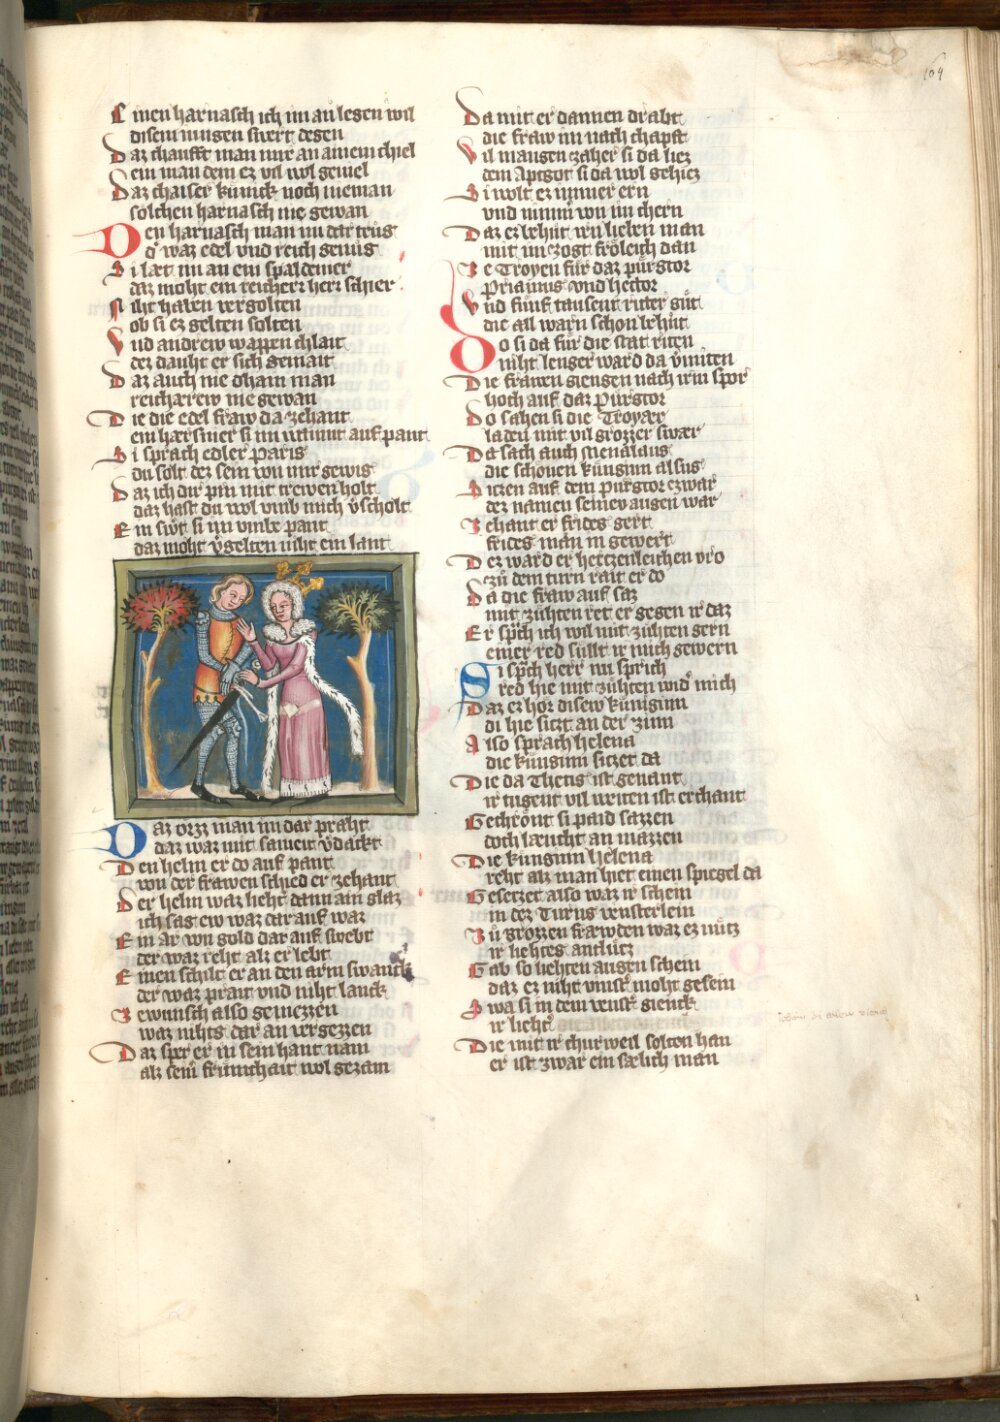 104
Einen harnasch ich im an legen wil
disem iungen swert degen
Daz chaufft man nur an ainem chiel
ein man dem ez vil wol geviel
Daz chaiser künick noch nieman
sölchen harnasch nie gewan
Den harnasch man im dar trüg
d waz edel vnd reich genüg
Si læt im an ein spaldenier
daz moht ein reicher herr schier
Niht haben vergolten
ob si ez gelten solten
Vnd andrew wappen chlait
dez dauht er sich gemait
Daz auch nie dhain man
reicherew nie gewan
Die die edel fraw da zehant
ein hærsnier si im
Si sprach edler paris
du solt dez sein von mir gewis
Daz ich dir pin mit trewen holt
daz hast du wol vmb mich v̄scholt
Ein swͦt si im vmbe pant
daz moht v̄gelten niht ein lant
Daz orzz man im dar praht
daz waz mit sameit v̄dackt
Den helm er do auf pant
von der frawen schied er zehant
Der helm waz lieht dann ain glaz
ich sag ew waz dar auf waz
Ein ar von gold dar auf swebt
der waz reht alz er lebt
Einen schilt er an den arm swanck
der waz prait vnd niht lanck
Ze wunsch also gemezzen
waz nihts dar an vergezzen
Daz sper er in sein hant nam
alz seiner frümchait wol gezam
Da mit er dannen drabt
die fraw im nach chapft
Vil mangen zaher si da liez
dem Aptgot si da wol gehiez
Si wolt ez immer ern
vnd nimm̄ von im chern
Daz er behüt irn lieben man
mit im zogt frölich dan
Die Troyen für daz pürgtor
Priamus vnd hector
Vnd fünf tausent riter güt
die all warn schon behüt
Do si da für die stat riten
niht lenger ward da v̄miten
Die frawen giengen nach irm spor
hoch auf daz pürgtor
Do sahen si die Troyær
laden mit vil grozzer swær
Da sach auch menalaus
die schonen künginn alsus
Siczen auf dem pürgtor ezwar
dez namen seinew augen war
Zehant er frides gert
frides man in gewert
Dez ward er herczenleichen vro
zü dem turn rait er do
Da die fraw auf saz
mit zühten ret er gegen ir daz
Er sp̄ch ich wil mit zühten gern
einer red süllt ir mich gewern
Si sp̄ch herr nu sprich
red hie mit zühten wid mich
Daz ez hör disew künginn
di hie siczt an der zinn
Also sprach helena
die künginn siczet da
Die da Thetis ist genant
ir tugent vil weiten ist erchant
Gechrönt si paid sazzen
doch læucht an mazzen
Die künginn helena
reht alz man hiet einen spiegel da
Geseczet also waz ir schein
in dez Turns vensterlein
Zü grozzen fræwden waz ez nücz
ir liehtes antlücz
Gab so liehten augen schein
daz ez niht vinst̄ moht gesein
Swa si in dem venst̄ gienck
ir lieht
Die mit ir churczweil solten han
er ist zwar ein sælich man